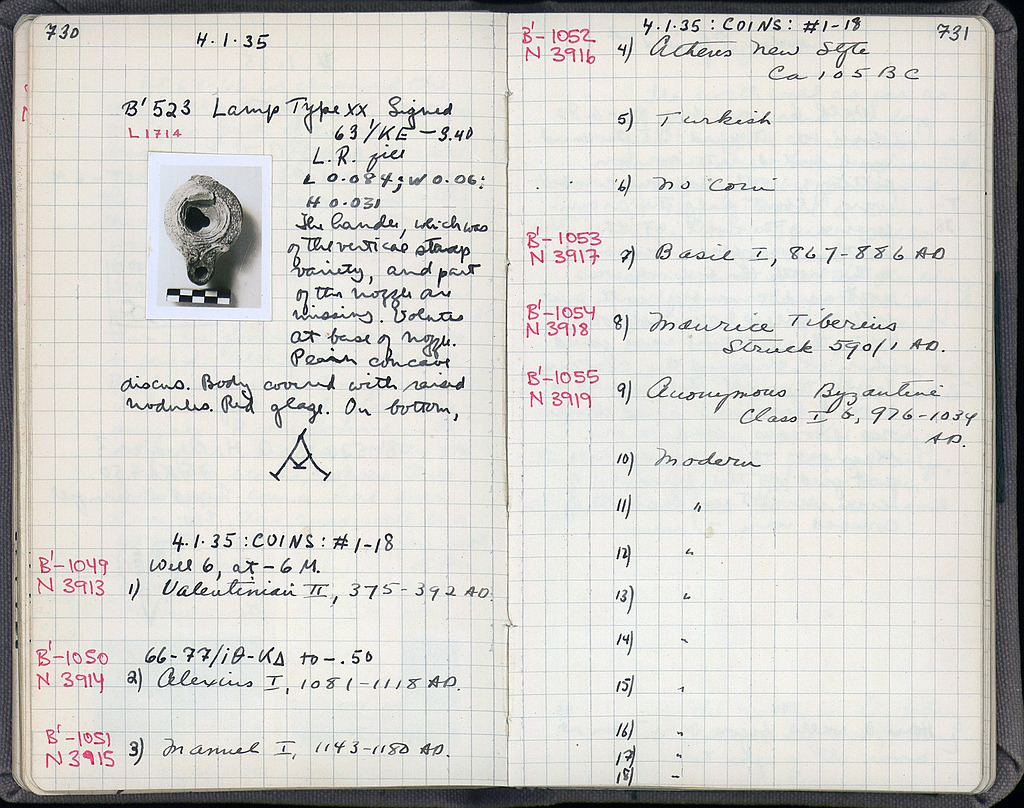 730
4.1.35
B' 523 Lamp Type XX, Signed
L 1714
63/ΚΕ — 3.40
L.R. fill
L 0.084; W 0.06;
H 0.031
The handle, which was
of the vertical strap
variety, and part
of the nozzle are
missing. Volutes
at base of nozzle.
Plain concave
discus. Body covered with raised
nodules. Red glaze. On bottom,
4.1.35 : COINS : #1-18
B'-1049
Well 6, at -6 M.
N 3913
1) Valentinian II, 375-392 AD.
B'-1050
66-77/ιθ-ΚΔ to -.50
N 3914
2) Alexius I, 1081-1118 AD.
B'-1051
N 3915
3) Manuel I, 1143-1180 AD.
4.1.35 : COINS : #1-18
731
B'-1052
N 3916
4) Athens New Style
Ca 105 BC
5) Turkish
6) No coin
B'-1053
N 3917
7) Basil I, 867-886 AD
B'-1054
N 3918
8) Maurice Tiberius
Struck 590/1 AD.
B'-1055
N 3919
9) Anonymous Byzantine
Class I b, 976-1034
AD.
10) Modern
11) "
12) "
13) "
14) "
15) "
16) "
17) "
18) "